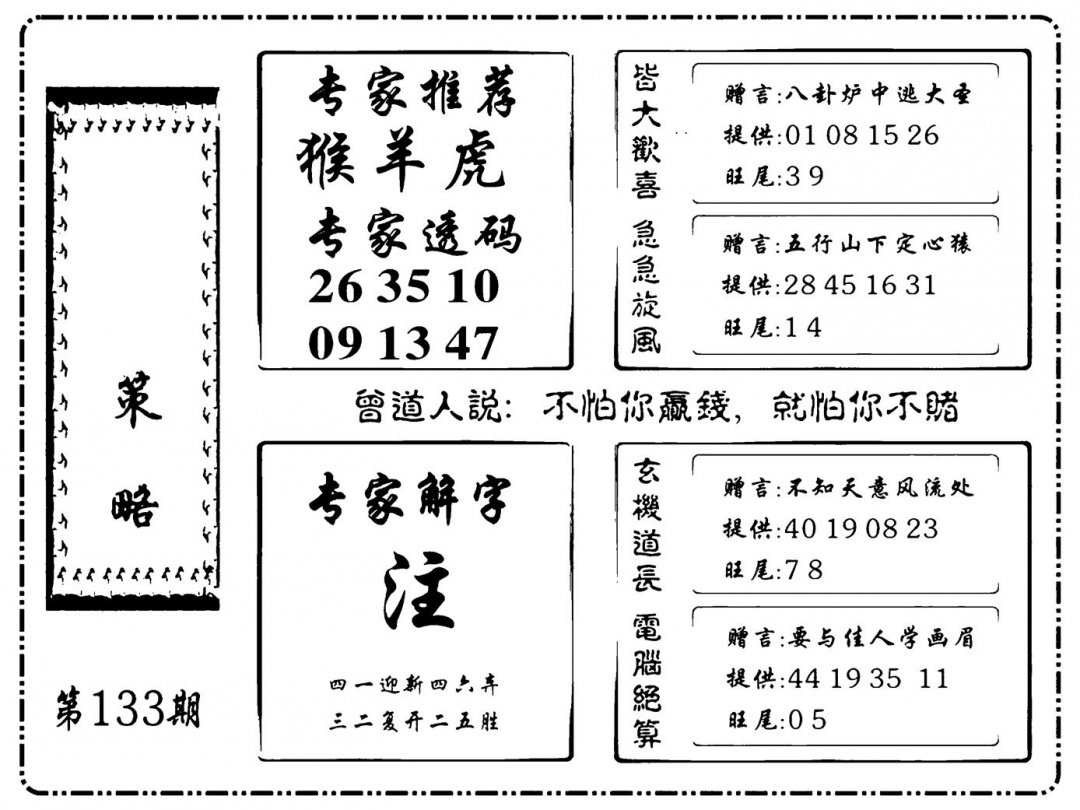 策略
第133期
专家推荐
猴羊虎
专家透码
26 35 10
09 13 47
皆大歡喜
赠言:八卦炉中逃大圣
提供:01 08 15 26
旺尾:3 9
急急旋風
赠言:五行山下定心猿
提供:28 45 16 31
旺尾:1 4
曾道人説: 不怕你贏錢, 就怕你不賭
专家解字
注
四一迎新四六弃
三二复开二五胜
玄機道長
赠言:不知天意风流处
提供:40 19 08 23
旺尾:7 8
電腦絕算
赠言:要与佳人学画眉
提供:44 19 35 11
旺尾:0 5